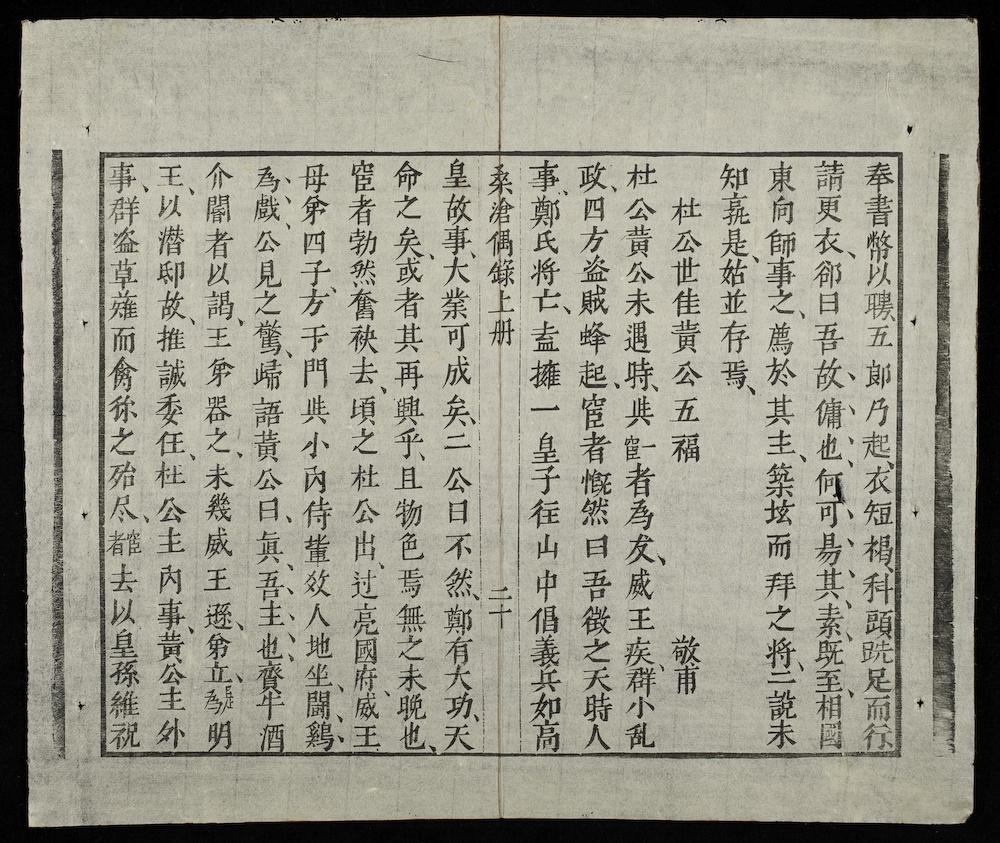 奉書幣以聘、五郎乃起、衣短褐、科頭跣足而行、
請更衣、郤曰吾故傭也、何可易其素、既至、相國
東向師事之、薦於其主、築坛而拜之将、二說未
知孰是、姑並存焉、
杜公世佳黄公五福　敬甫
杜公黄公未遇時、与一宦者為友、威王疾、群小乱
政、四方盗賊蜂起、宦者慨然曰吾徴之天時人
事、鄭氏将亡、盍擁一皇子往山中倡義兵如高
桑滄偶錄上册　二十
皇故事、大業可成矣、二公曰不然、鄭有大功、天
命之矣、或者其再興乎、且物色焉無之未晚也、
宦者勃然奮袂去、頃之杜公出、过亮國府、威王
母第四子、方于門与小内侍輩效人地坐、闘鷄、
為戲、公見之驚、歸語黄公曰、眞吾主也、賫牛酒
介閽者以謁、王第器之、未幾威王遜、第立、是為明
王、以潜邸故、推誠委任、杜公主内事、黄公主外
事、群盗草薙而禽狝之殆尽、宦者去以皇孫維祝